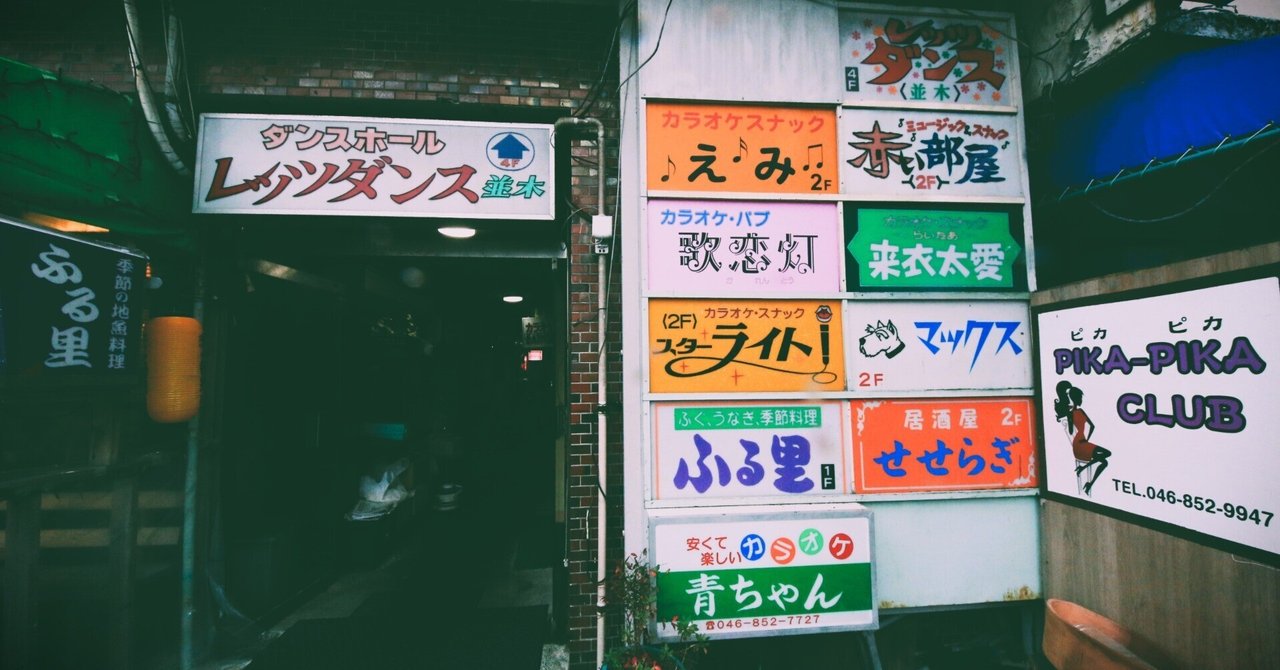 ダンスホール
レッツダンス 並木
4F
ふる里
季節の地魚料理
レッツ
ダンス
4F
〈並木〉
カラオケスナック
えみ
2F
ミュージック&スナック
赤い部屋
〈2F〉
カラオケ・パブ
歌恋灯
か れん とう
カラオケ・スナック
らいたあ
来衣太愛
(2F) カラオケ・スナック
スターライト
マックス
2F
ふぐ、うなぎ、季節料理
ふる里
1F
居酒屋 2F
せせらぎ
安くて
楽しい
カラオケ
青ちゃん
☎046-852-7727
ピカ ピカ
PIKA-PIKA
CLUB
TEL.046-852-9947